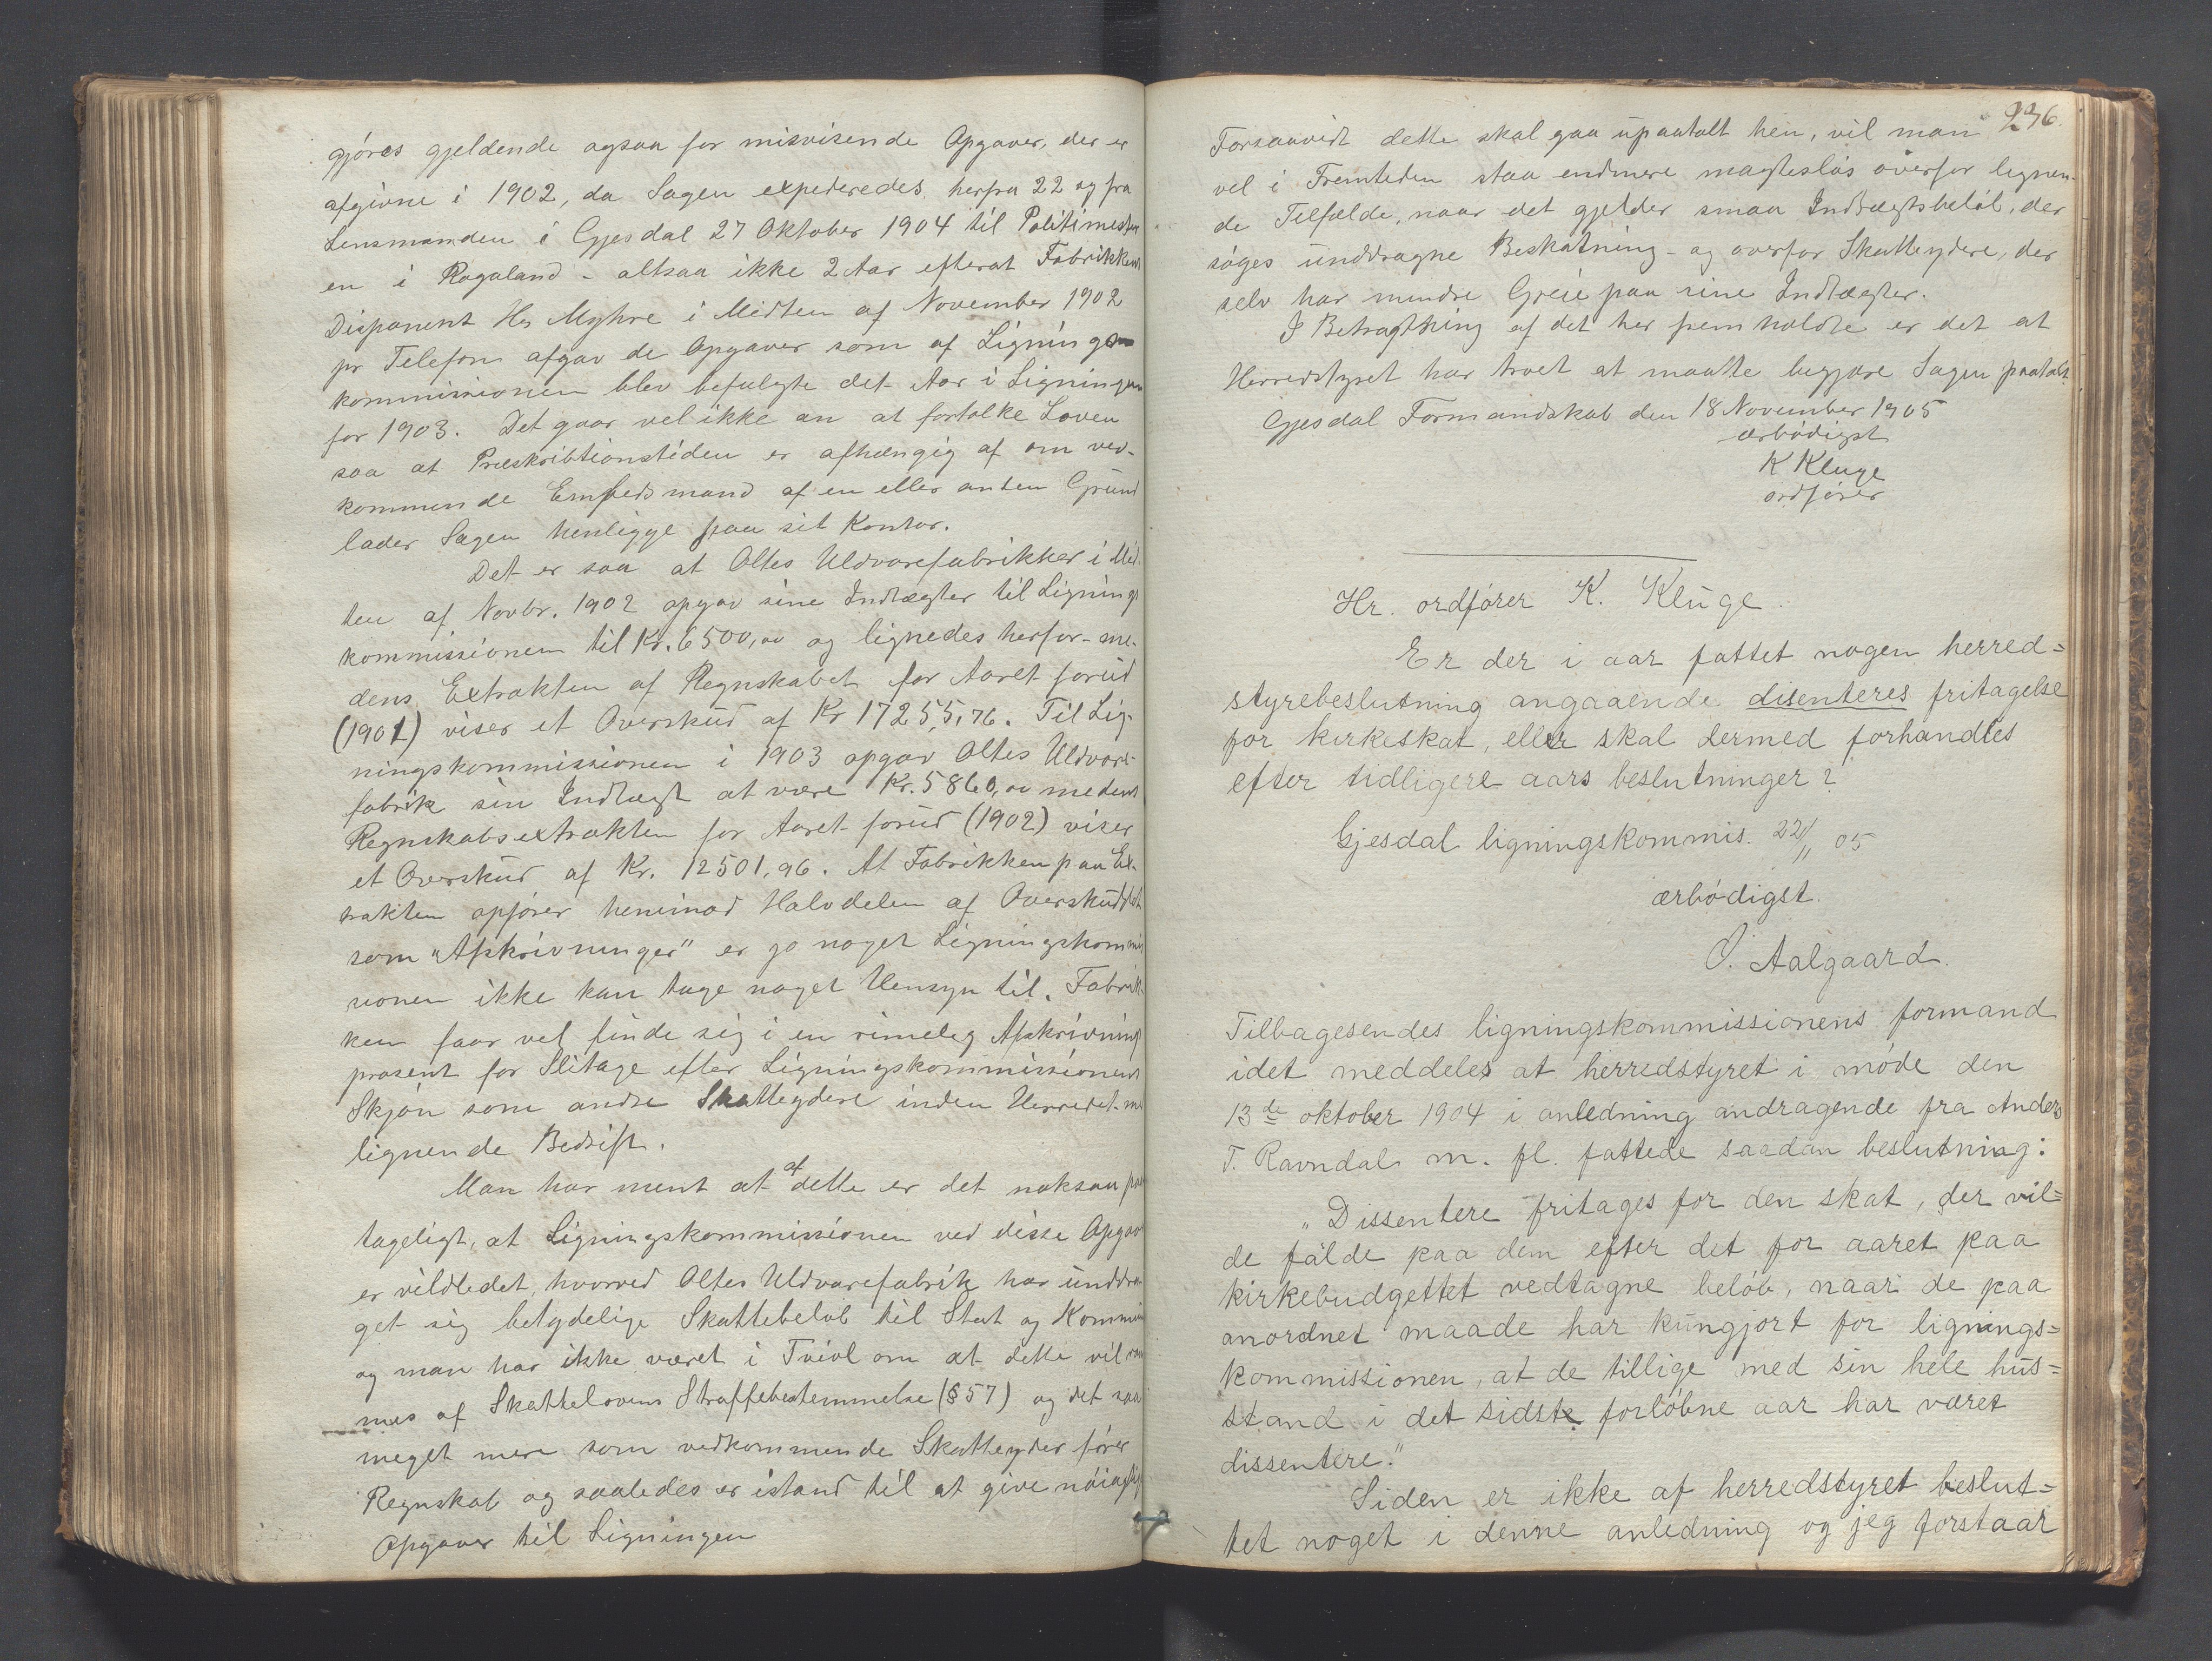 gjöres gjeldende ogsaa for misvisende Opgaver, der er
afgivne i 1902, da Sagen expederedes herfra 22 og fra
Lensmanden i Gjesdal 27 Oktober 1904 til Politimester
en i Rogaland - altsaa ikke 2 Aar efterat Fabrikkens
Disponent Hr Myhre i Midten af November 1902
pr Telefon afgav de Opgaver som af Lignings
kommissionen blev befulgte det Aar i Ligningen
for 1903. Det gaar vel ikke an at fortolke Loven
saa at Præskribtionstiden er afhængig af om ved-
kommende Embedsmand af en eller anden Grund
lader Sagen henligge paa sit Kontor.
Det er saa at Oltes Uldvarefabrikker i Mid-
ten af Novbr. 1902 opgav sine Indtægter til Lignings
kommissionen til Kr. 6500,00 og lignedes herfor - me-
dens Extrakten af Regnskabet for Aaret forud
(1901) viser et Overskud af Kr 17255,76. Til Lig-
ningskommissionen i 1903 opgav Oltes Uldvare-
fabrik sin Indtægt at være Kr. 5860,00 medens
Regnskabsextrakten for Aaret forud (1902) viser
et Overskud af Kr. 12501,96. At Fabrikken paa Ex-
trakten opfører henimod Halvdelen af Overskuddet
som "Afskrivninger" er jo noget Ligningskommis
sionen ikke kan tage noget Hensyn til. Fabrik-
ken faar vel finde sig i en rimelig Afskrivnings
prosent for Slitage efter Ligningskommissionens
Skjøn som andre Skatteydere inden Herredet med
lignende Bedrift.
Man har ment at af dette er det noksaa paa
tageligt, at Ligningskommissionen ved disse Opgaver
er vildledet, hvorved Oltes Uldvarefabrik har unddra-
get sig betydelige Skattebeløb til Stat og Kommune
og man har ikke været i Tvivl om at dette vil ram
mes af Skattelovens Straffebestemmelse (§ 57) og det saa
meget mere som vedkommende Skatteyder fører
Regnskab og saaledes er istand til at give nøiagtige
Opgaver til Ligningen
236.
Forsaavidt dette skal gaa upaatalt hen, vil man
vel i Fremtiden staa endmere magtesløs overfor lignen-
de Tilfælde, naar det gjelder smaa Indtægtsbeløb, der
søges unddragne Beskatning - og overfor Skatteydere, der
selv har mindre Greie paa sine Indtægter.
I Betragtning af det her fremholdte er det at
Herredstyret har troet at maatte begjære Sagen paatalt.
Gjesdal Formandskab den 18 November 1905
ærbödigst
K Kluge
ordfører
Hr. ordförer K. Kluge.
Er der i aar fattet nogen herred=
styrebeslutning angaaende disenteres fritagelse
for kirkeskat, eller skal dermed forhandles
efter tidligere aars beslutninger?
Gjesdal ligningskommis. 22/11 05
ærbödigst.
O. Aalgaard.
Tilbagesendes ligningskommissionens formand
idet meddeles at herredstyret i möde den
13de oktober 1904 i anledning andragende fra Anders
T. Ravndal m. fl. fattede saadan beslutning:
"Dissentere fritages for den skat, der vil=
de falde paa dem efter det for aaret paa
kirkebudgettet vedtagne belöb, naar de paa
anordnet maade har kungjort for lignings=
kommissionen, at de tillige med sin hele hus=
stand i det sidste forlöbne aar har været
dissentere."
Siden er ikke af herredstyret beslut=
tet noget i denne anledning og jeg forstaar